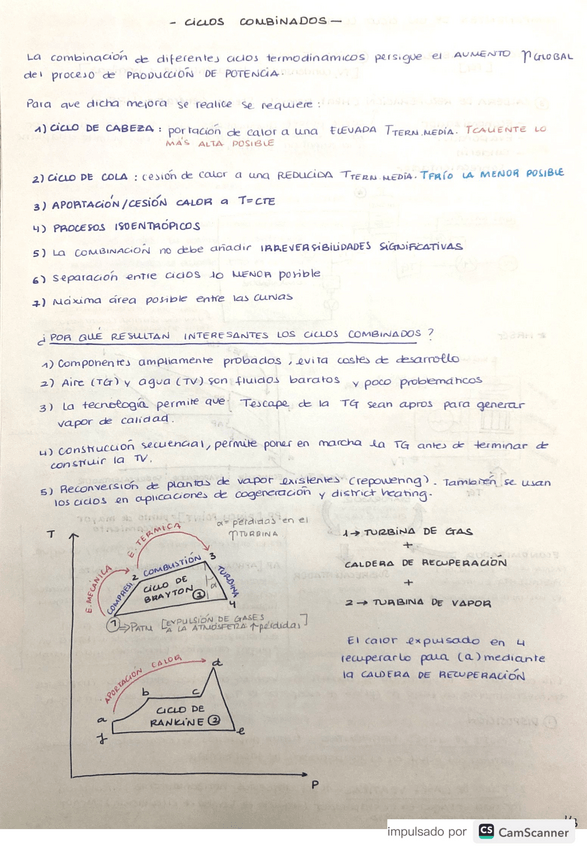 - CICLOS COMBINADOS -
La combinación de diferentes ciclos termodinámicos persigue el AUMENTO η GLOBAL
del proceso de PRODUCCIÓN DE POTENCIA.
Para que dicha mejora se realice se requiere:
1) CICLO DE CABEZA: portación de calor a una ELEVADA TTERN.MEDIA. TCALIENTE LO
MÁS ALTA POSIBLE
2) CICLO DE COLA: cesión de calor a una REDUCIDA TTERN.MEDIA. TFRÍO LA MENOR POSIBLE
3) APORTACIÓN/CESIÓN CALOR a T=CTE
4) PROCESOS ISOENTRÓPICOS
5) La COMBINACIÓN no debe añadir IRREVERSIBILIDADES SIGNIFICATIVAS
6) Separación entre ciclos lo MENOR posible
7) Máxima área posible entre las curvas
¿POR QUÉ RESULTAN INTERESANTES LOS CICLOS COMBINADOS?
1) Componentes ampliamente probados, evita costes de desarrollo
2) Aire (TG) y agua (TV) son fluidos baratos y poco problemáticos
3) La tecnología permite que Tescape de la TG sean apros para generar
vapor de calidad.
4) Construcción secuencial, permite poner en marcha la TG antes de terminar de
construir la TV.
5) Reconversión de plantas de vapor existentes (repowering). También se usan
los ciclos en aplicaciones de cogeneración y district heating.
T
E. MECÁNICA
E. TÉRMICA
a = pérdidas en el
η TURBINA
COMPRES
2
COMBUSTIÓN
3
TURBINA
a
4
CICLO DE
BRAYTON ①
① ⇒ Patm [EXPULSIÓN DE GASES
A LA ATMÓSFERA ↑ pérdidas]
APORTACIÓN CALOR
a
b
c
d
e
f
CICLO DE
RANKINE ②
P
1 → TURBINA DE GAS
+
CALDERA DE RECUPERACIÓN
+
2 → TURBINA DE VAPOR
El calor expulsado en 4
recuperarlo para (a) mediante
la CALDERA DE RECUPERACIÓN
impulsado por CS CamScanner